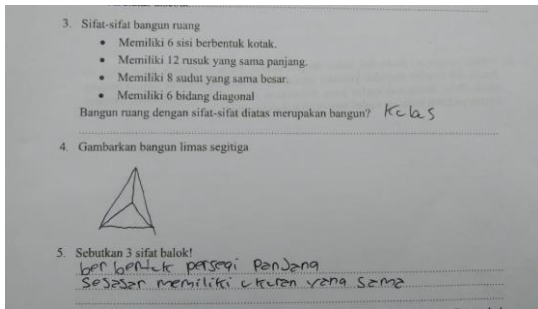 3. Sifat-sifat bangun ruang
• Memiliki 6 sisi berbentuk kotak.
• Memiliki 12 rusuk yang sama panjang.
• Memiliki 8 sudut yang sama besar.
• Memiliki 6 bidang diagonal
Bangun ruang dengan sifat-sifat diatas merupakan bangun? Kelas
4. Gambarkan bangun limas segitiga
5. Sebutkan 3 sifat balok!
berbentuk persegi Panjang
Sesasar memiliki ukuran yang Sama